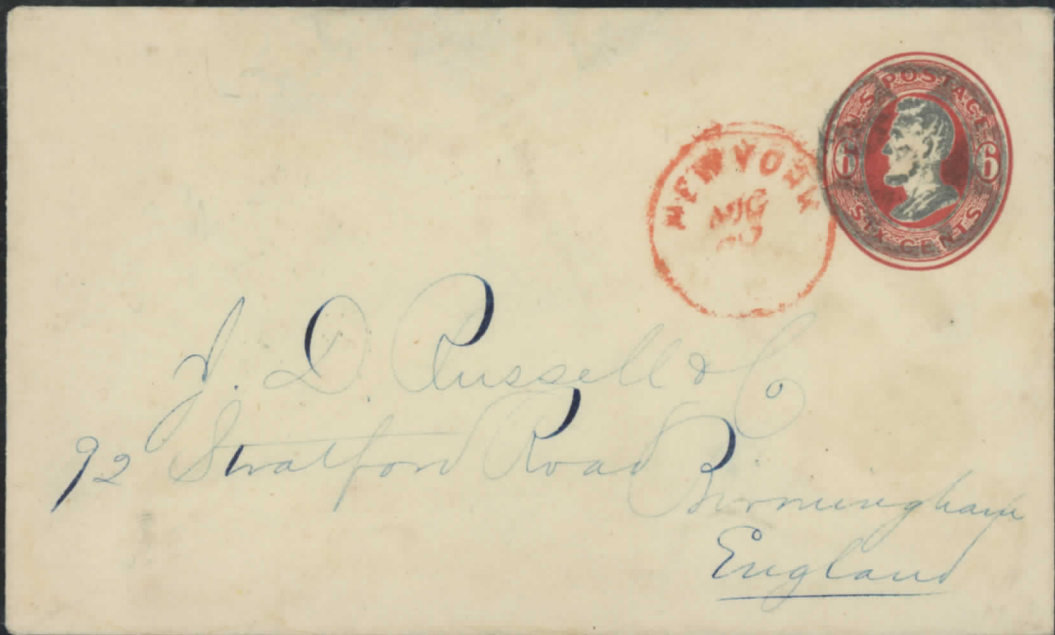 U.S. POSTAGE
6 6
SIX CENTS
NEW YORK
AUG
J. D. Russell & Co
92 Stratford Road Birmingham
England